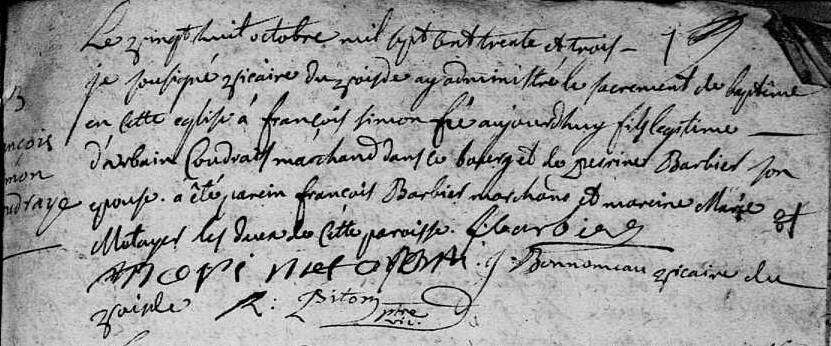 Le vingt huit octobre mil sept cent trente et trois
je sousigné vicaire du voisde ay administré le sacrement de baptême
en cette eglise à françois simon né aujourdhuy fils legitime
d'urbain Coudraye marchand dans ce bourg et de perrine Barbier son
epouse. a été parein françois Barbier marchand et mareine Marie
Metayer les deux de cette paroisse. f barbier
mari metayer. j: Bonnomeau vicaire du
voisde R: Piton ptre vic.
3
ançois
mon
udraye